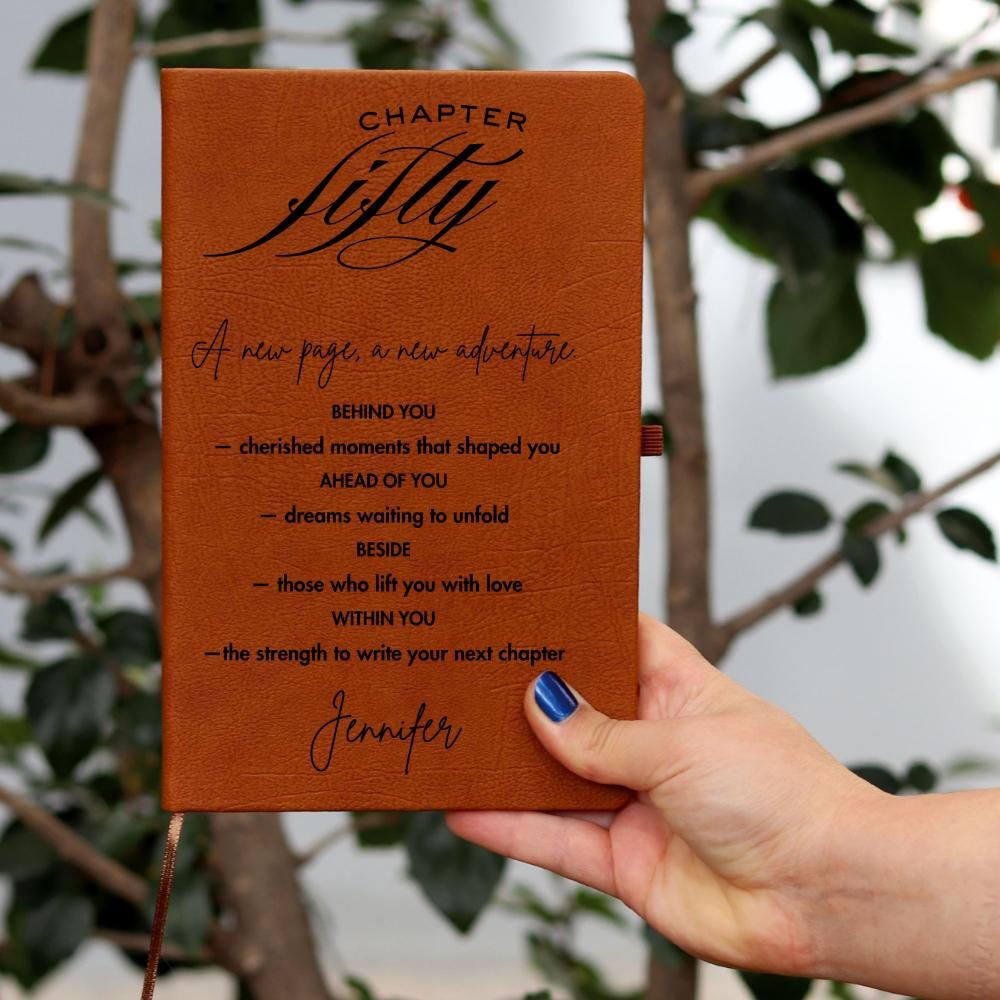 CHAPTER
fifty
A new page, a new adventure.
BEHIND YOU
— cherished moments that shaped you
AHEAD OF YOU
— dreams waiting to unfold
BESIDE
— those who lift you with love
WITHIN YOU
—the strength to write your next chapter
Jennifer